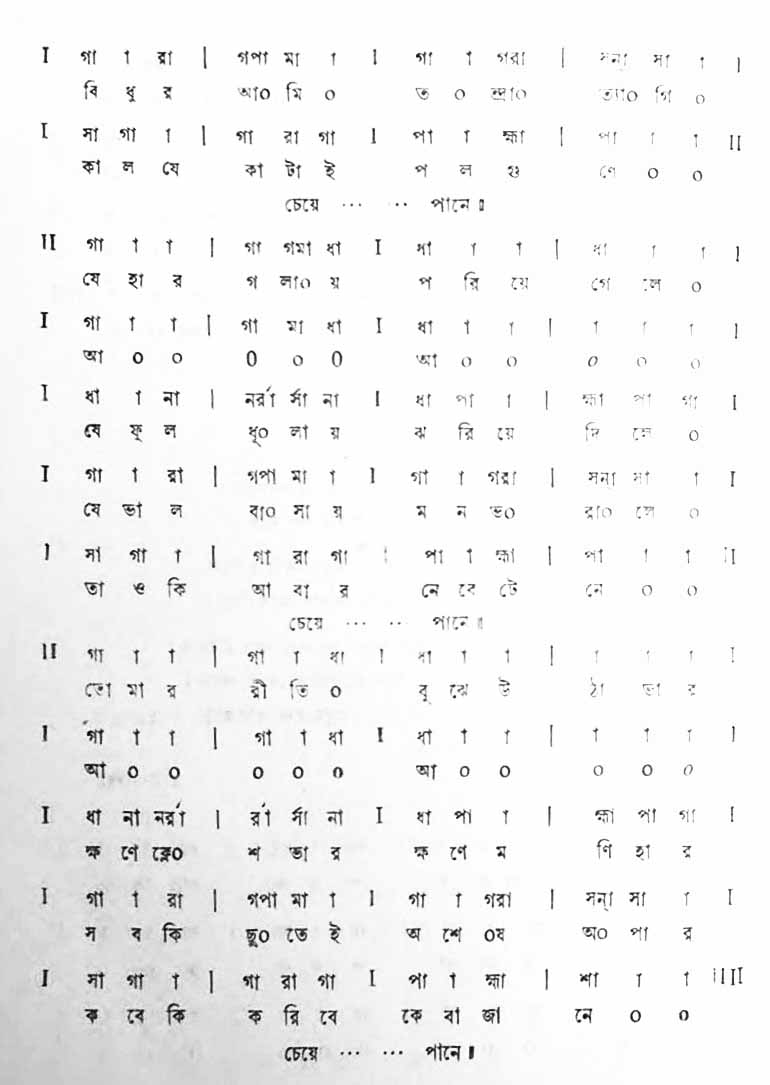 I গা া রা | গপা মা া I গা া গরা | সন্া সা া I
বি ধু র আ০ মি ০ ত ০ ন্দ্রা০ ত্যা০ গি ০
I সা গা া | গা রা গা I পা া হ্মা | পা া া II
কা ল যে কা টা ই প ল গু ণে ০ ০
চেয়ে ... ... পানে॥
II গা া া | গা গমা ধা I ধা া া | ধা া া I
যে হা র গ লা০ য় প রি য়ে গে লে ০
I গা া া | গা মা ধা I ধা া া | া া া I
আ ০ ০ ০ ০ ০ আ ০ ০ ০ ০ ০
I ধা া না | নর্রা র্সা না I ধা পা া | হ্মা পা গা I
যে ফু ল ধূ০ লা য় ঝ রি য়ে দি লে ০
I গা া রা | গপা মা া I গা া গরা | সন্া সা া I
যে ভা ল বা০ সা য় ম ন ভ০ রা০ লে ০
I সা গা া | গা রা গা I পা া হ্মা | পা া া II
তা ও কি আ বা র নে বে টে নে ০ ০
চেয়ে ... ... পানে॥
II গা া া | গা া ধা I ধা া া | া া া I
তো মা র রী তি ০ বু ঝে উ ঠা ভা র
I গা া া | গা া ধা I ধা া া | া া া I
আ ০ ০ ০ ০ ০ আ ০ ০ ০ ০ ০
I ধা না নর্রা | র্রা র্সা না I ধা পা া | হ্মা পা গা I
ক্ষ ণে ক্লে০ শ ভা র ক্ষ ণে ম ণি হা র
I গা া রা | গপা মা া I গা া গরা | সন্া সা া I
স ব কি ছু০ তে ই অ শে ০ষ অ০ পা র
I সা গা া | গা রা গা I পা া হ্মা | শা া া IIII
ক বে কি ক রি বে কে বা জা নে ০ ০
চেয়ে ... ... পানে॥